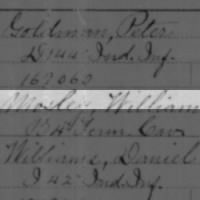 Goldman, Peter
D 144 Ind. Inf.
162060
Mosley, William
B 4 Tenn Cav
Williams, Daniel
I 42 Ind. Inf.